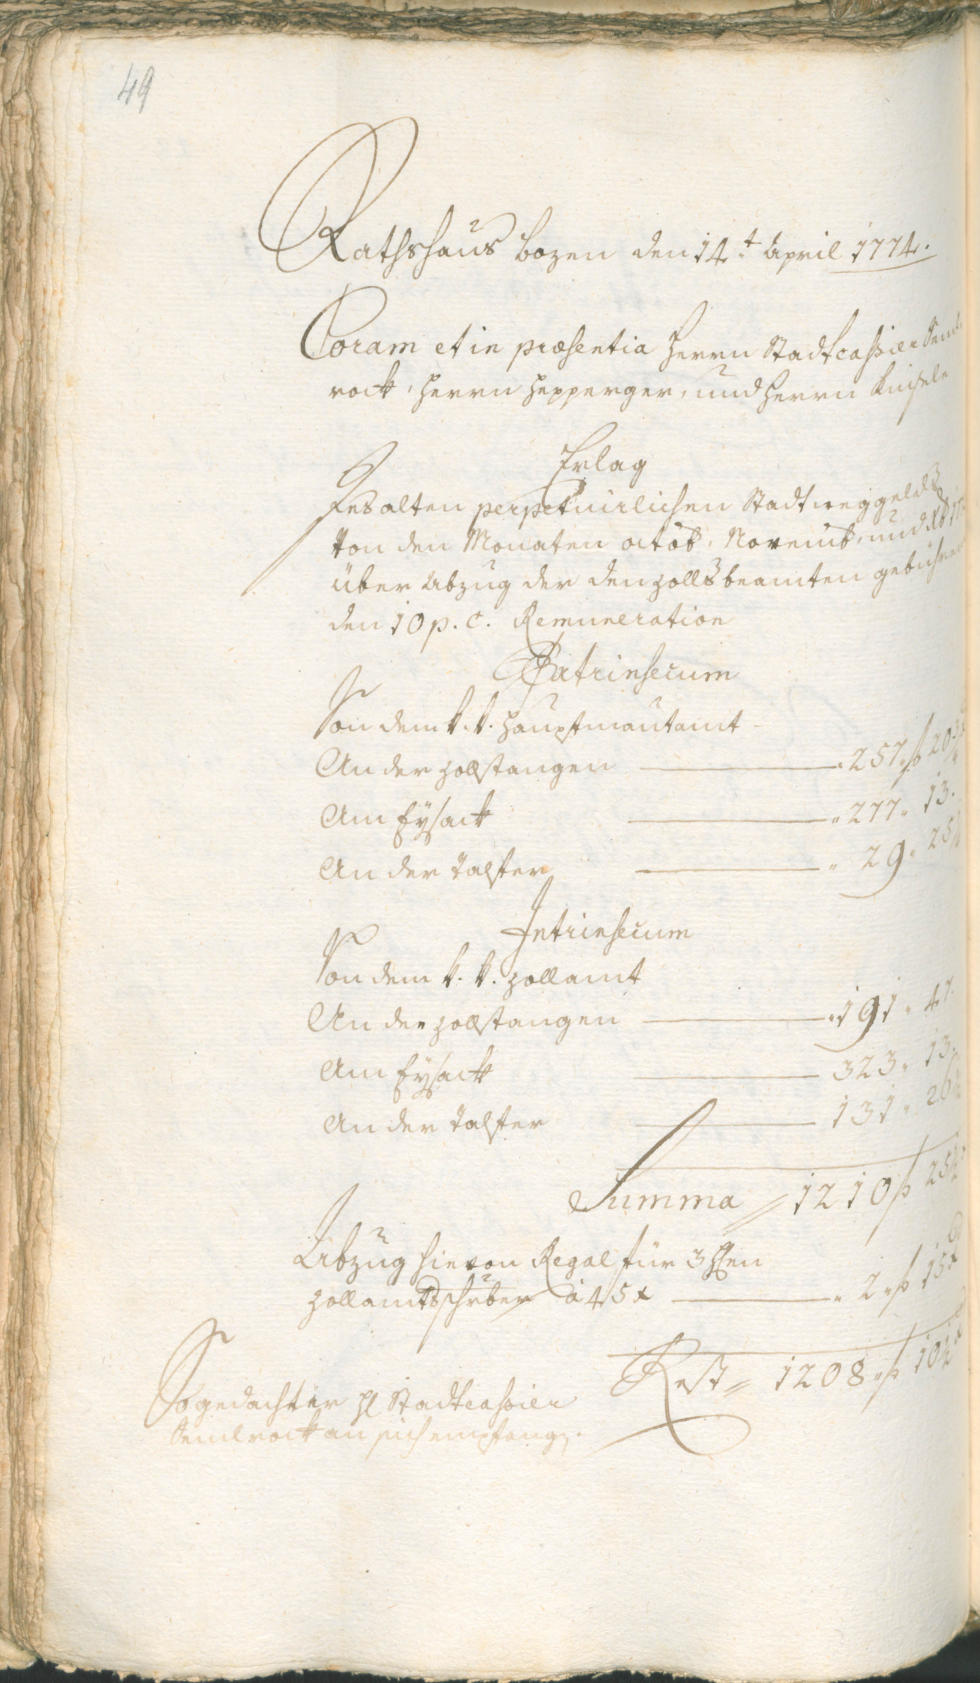 49
Rathshaus Bozen den 14.t April 1774.
Coram et in præsentia Herrn Stadtcassier
rock, Herrn Hepperger, und Herrn
Erlag
Des alten perpetuirlichen Stadtweggelds
von den Monaten octob: Novemb: und
über Abzug der den Zollsbeamten gebühren
den 10 p. c. Remuneration
Extrinsecum
Von dem k. k. Hauptmautamt
An der Zollstangen 257 f 20
Am Eysack 277 " 13
An der Talfer " 29 " 25
Intrinsecum
Von dem k. k. Zollamt
An der Zollstangen " 191 " 47
Am Eysack 323 " 13
An der Talfer 131 " 26
Summa 1210 f 25
Abzug hievon Regal für 3
Zollamtsschreiber à 45 x " 2 f 15 x
Rest 1208 f 10
So gedachter H Stadtcassier
an sich empfang.